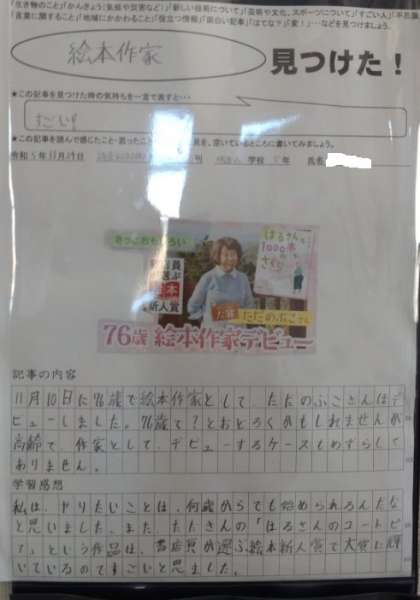 「生き物のこと」「かんきょう（気候や災害など）」「新しい技術について」「芸術や文化、スポーツについて」「すごい人」
「言葉に関すること」「地域にかかわること」「役立つ情報」「面白い記事」「はてな？」「変！」…などを見つけましょう。
絵本作家
見つけた！
★この記事を見つけた時の気持ちを一言で表すと…
すごい!!
★この記事を読んで感じたこと・思ったこと
を、空いているところに書いてみましょう。
令和5年11月29日
学校 5年 氏名
きっとおもしろい
はるさんと
1000本の
さくら
選ぶ
絵本
新人賞
大賞
ただのぶこさん
76歳 絵本作家デビュー
記事の内容
11月10日に76歳で絵本作家として、ただのぶこさんはデ
ビューしました。76歳で？とおどろくかもしれませんが
高齢で、作家として、デビューするケースもめずらしくて
ありません。
学習感想
私は、やりたいことは、何歳からでも始められるんだな
と思いました。また、たださんの「はるさんのコートピ
て」という作品は、書店員が選ぶ絵本新人賞で大賞に輝
いているのですごいと思ました。